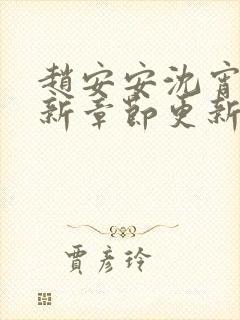 趙安安沈宵
新章節更新
賈彥玲